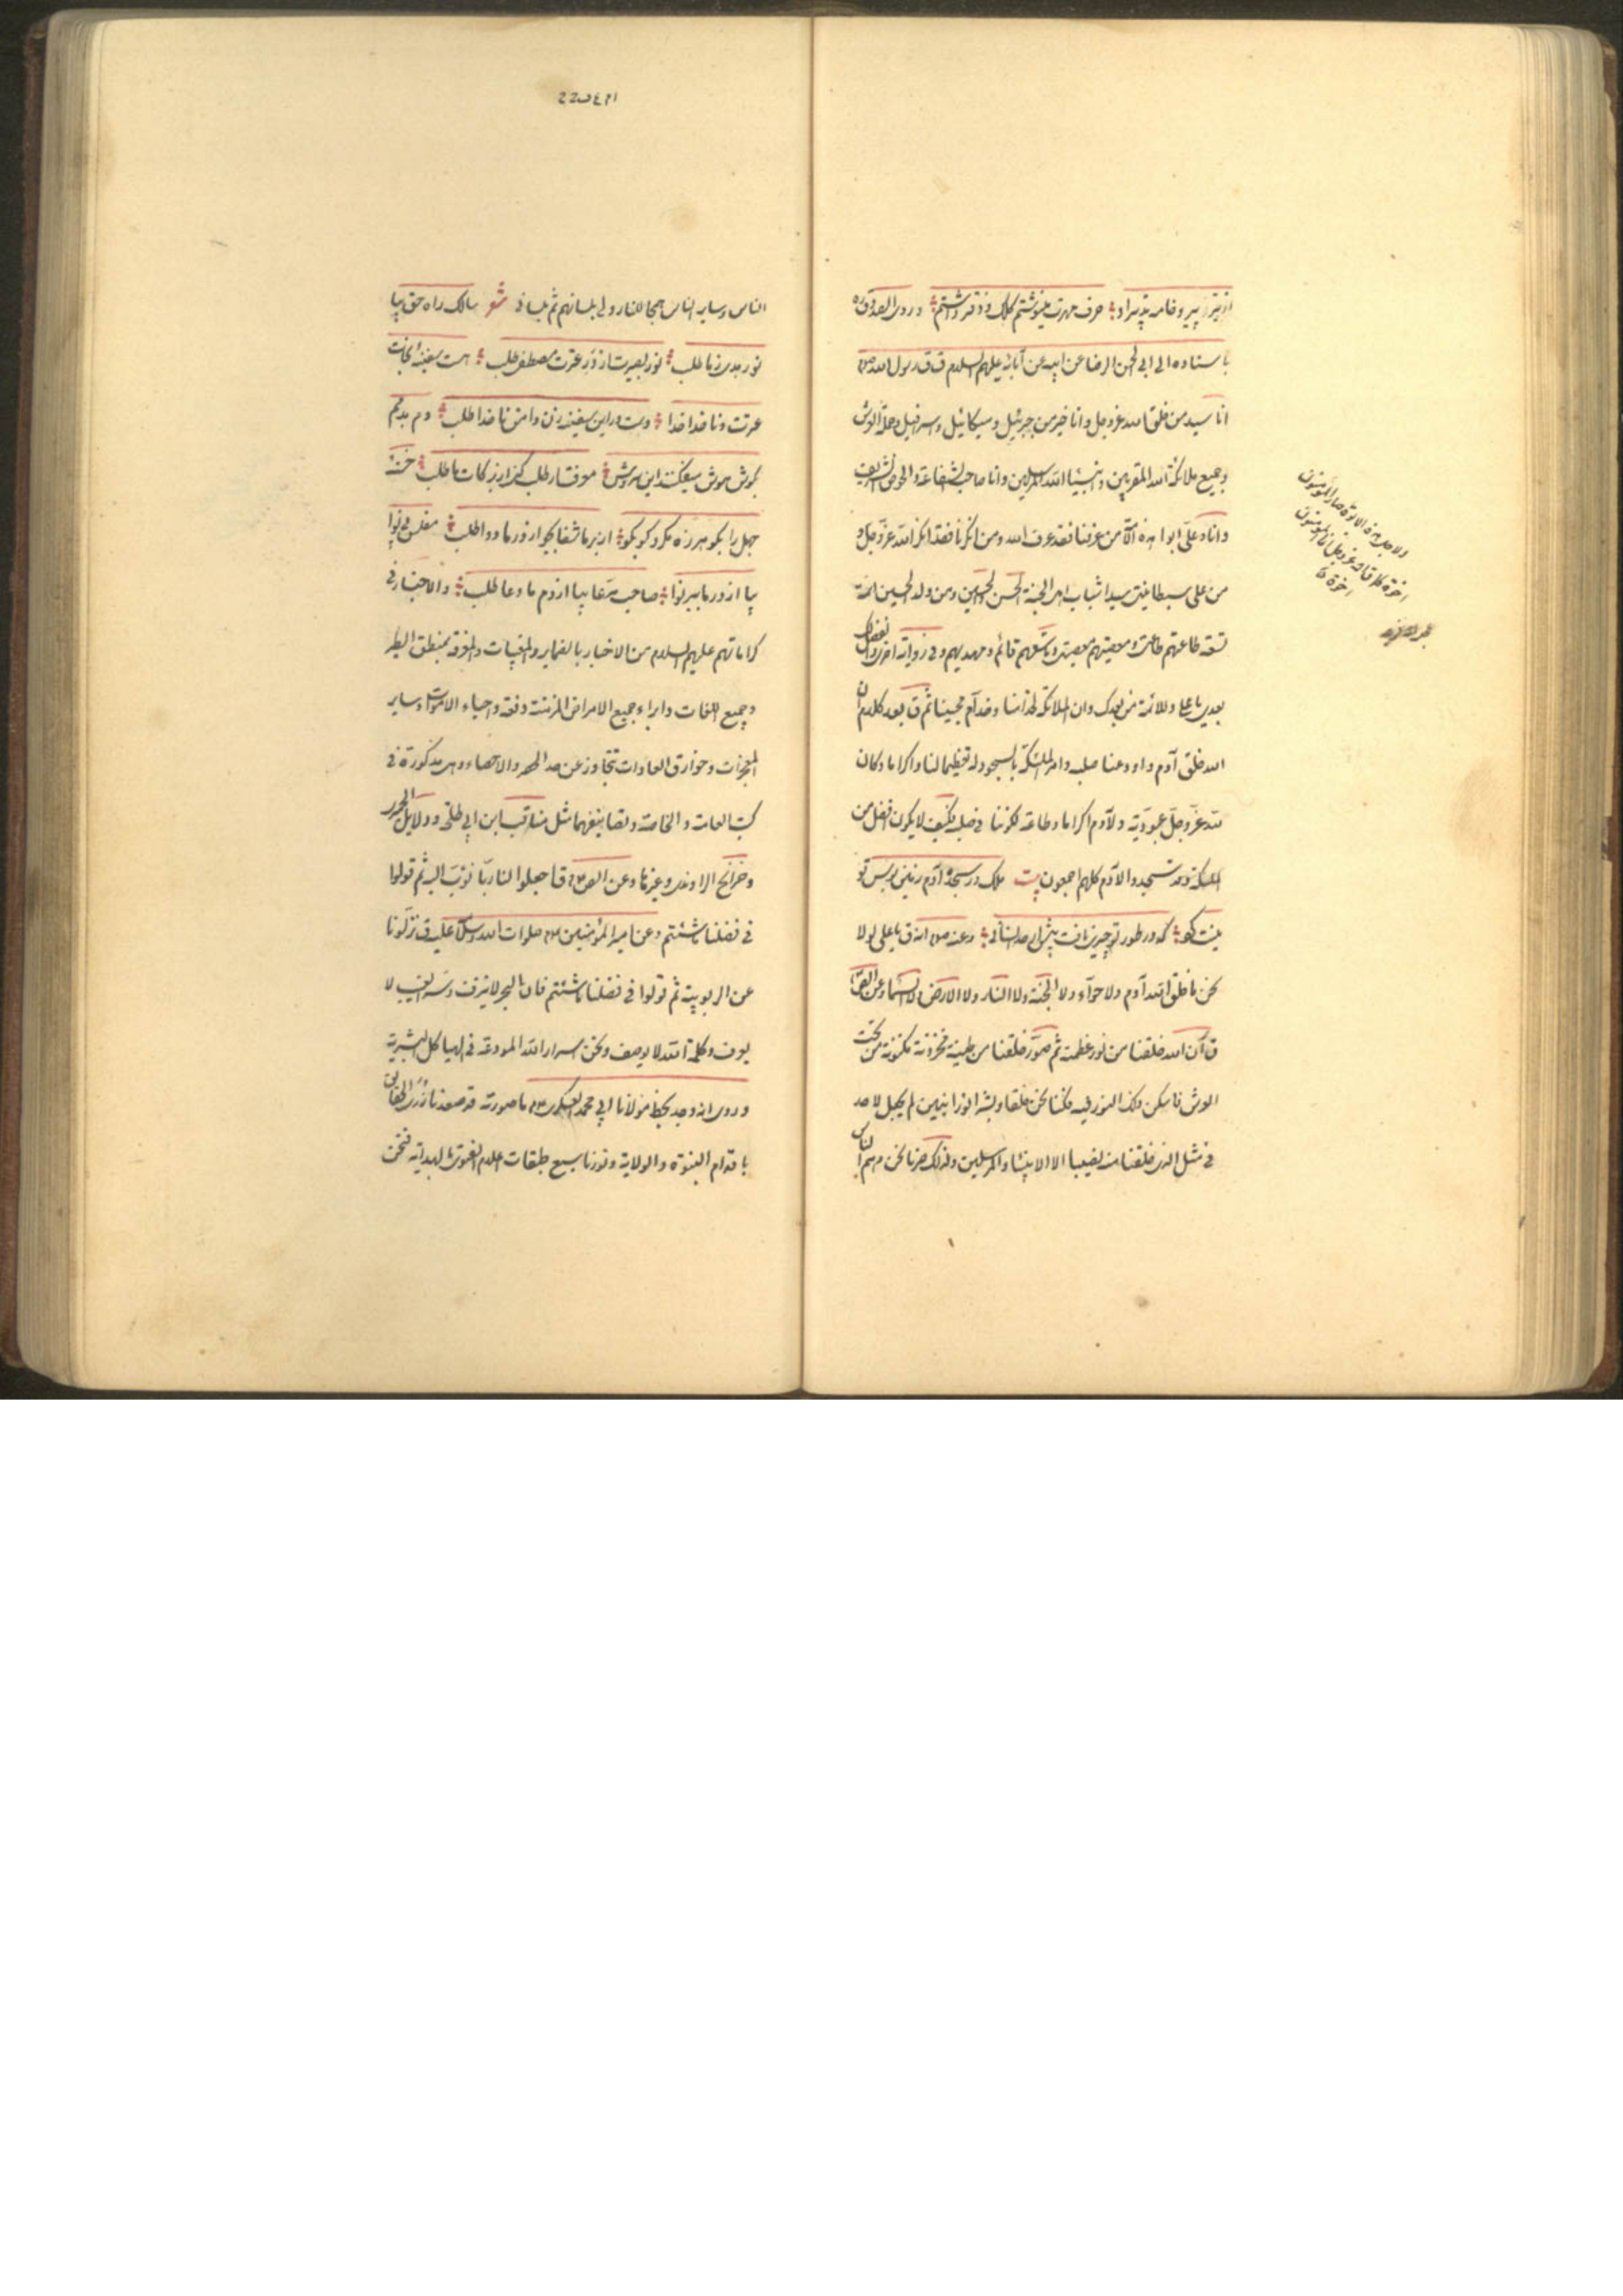 از تیر پیر و خامه تدبیر او حرف مهرت مینوشتم کلک و دفتر داشتم وروی الصدوق ره
باسناده الی ابی الحسن الرضا عن ابیه عن آبائه علیهم السلام ق ق رسول الله ص
انا سید من خلق الله عزوجل وانا خیر من جبرئیل ومیکائیل واسرافیل وحملة العرش
وجمیع ملائکة الله المقربین وانبیاء الله المرسلین وانا صاحب الشفاعة والحوض الشریف
وانا وعلی ابوا هذه الامة من عرفنا فقد عرف الله ومن انکرنا فقد انکر الله عزوجل و
من علی سبطا امتی سیدا شباب اهل الجنة الحسن والحسین ومن ولد الحسین ائمة
تسعة طاعتهم طاعتی ومعصیتهم معصیتی وتاسعهم قائمهم ومهدیهم وفی روایة اخری والفضل
بعدی یا علی وللائمة من بعدک وان الملائکة لخدامنا وخدام محبینا ثم ق بعد کلام ان
الله خلق آدم واودعنا صلبه وامر الملئکة بالسجود له تعظیما لنا واکراما وکان
لله عزوجل عبودیة ولآدم اکراما وطاعة لکوننا فی صلبه فکیف لا یکون افضل من
الملئکة وقد سجدوا لآدم کلهم اجمعون بیت ملک در سجدهٔ آدم زمین بوس تو
نیت کرد که در طور تو چیزی یافت بیش از حد انسانی وعنه ص انه ق یا علی لولا
نحن ما خلق الله آدم ولا حوآء ولا الجنة ولا النار ولا الارض ولا السماء وعن الص
ق ان الله خلقنا من نور عظمته ثم صور خلقنا من طینة مخزونة مکنونة من تحت
العرش فاسکن ذلک النور فیه فکنا نحن خلقا وبشرا نورانیین لم یجعل لاحد
فی مثل الذی خلقنا منه نصیبا الا الانبیاء والمرسلین ولذلک صرنا نحن وهم الناس
ولاجل هذه الابوة صار المؤمنون
اخوة کما قال عزوجل انما المؤمنون
اخوة
الناس وسایر الناس همجا للنار والی بلسانهم ثم بلسانی شعر سالک راه حق بیا
نور هدی ز ما طلب نور بصیرت از در عترت مصطفی طلب هست سفینهٔ نجات
عترت وناخدا خدا دست در این سفینه زن دامن ناخدا طلب دم بدمم
بگوش هوش میفکند این سروش معرفت ار طلب کنی از برکات ما طلب خستهٔ
جهل را بگو هرزه مگرد کو بکو از بر ما شفا بجو از در ما دوا طلب مفلس بی نوا
بیا از در ما ببر نوا صاحب مدعا بیا از دم ما دعا طلب والاخبار فی
کراماتهم علیهم السلام من الاخبار بالضمایر والمغیبات والمعرفة بمنطق الطیر
وجمیع اللغات وابراء جمیع الامراض المزمنة دفعة واحیاء الاموات وسایر
المعجزات وخوارق العادات تتجاوز عن حد الحصر والاحصاء وهی مذکورة فی
کتب العامة والخاصة وتصانیفهما مثل مناقب ابن ابی طلحة ودلایل الحمیری
وخرایج الراوندی وغیرها وعن الص ع ق اجعلوا لنا ربا نؤب الیه ثم قولوا
فی فضلنا ما شئتم وعن امیر المؤمنین صلوات الله وسلامه علیه ق نزلونا
عن الربوبیة ثم قولوا فی فضلنا ما شئتم فان البحر لا ینزف وسر الغیب لا
یعرف وکلمة الله لا یوصف ونحن اسرار الله المودعة فی الهیاکل البشریة
وروی انه وجد بخط مولانا ابی محمد العسکری ع ما صورته قد صعدنا ذری الحقایق
باقدام النبوة والولایة ونورنا سبع طبقات اعلام الفتوی بالهدایة فنحن